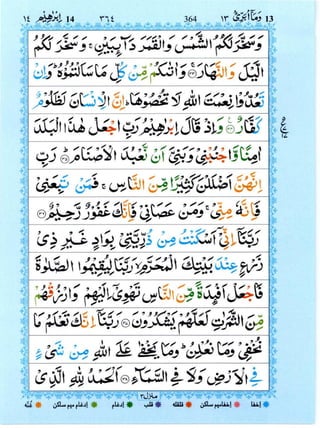 ابرٰهيم 14 ٣٦٤ 364 وَمَآ اُبَرِّئُ ١٣ 13
وَسَخَّرَ لَكُمُ الشَّمْسَ وَالْقَمَرَ دَآئِبَيْنِ ۚ وَسَخَّرَ لَكُمُ
الَّيْلَ وَالنَّهَارَ ۚ‏﴿۳۳﴾ وَاٰتٰٮكُمْ مِّنْ كُلِّ مَا سَاَلْتُمُوْهُ ؕ وَاِنْ
تَعُدُّوْا نِعْمَتَ اللّٰهِ لَا تُحْصُوْهَا ؕ اِنَّ الْاِنْسَانَ لَظَلُوْمٌ
كَفَّارٌ ﴿۳۴﴾ وَاِذْ قَالَ اِبْرٰهِيْمُ رَبِّ اجْعَلْ هٰذَا الْبَلَدَ
اٰمِنًا وَّاجْنُبْنِيْ وَبَنِيَّ اَنْ نَّعْبُدَ الْاَصْنَامَ ﴿۳۵﴾ رَبِّ
اِنَّهُنَّ اَضْلَلْنَ كَثِيْرًا مِّنَ النَّاسِ ۚ فَمَنْ تَبِعَنِيْ
فَاِنَّهٗ مِنِّيْ ۚ وَمَنْ عَصَانِيْ فَاِنَّكَ غَفُوْرٌ رَّحِيْمٌ ﴿۳۶﴾
رَبَّنَاۤ اِنِّيْۤ اَسْكَنْتُ مِنْ ذُرِّيَّتِيْ بِوَادٍ غَيْرِ ذِيْ
زَرْعٍ عِنْدَ بَيْتِكَ الْمُحَرَّمِ ۙ رَبَّنَا لِيُقِيْمُوا الصَّلٰوةَ
فَاجْعَلْ اَفْئِدَةً مِّنَ النَّاسِ تَهْوِيْۤ اِلَيْهِمْ وَارْزُقْهُمْ
مِّنَ الثَّمَرٰتِ لَعَلَّهُمْ يَشْكُرُوْنَ ﴿۳۷﴾ رَبَّنَاۤ اِنَّكَ تَعْلَمُ مَا
نُخْفِيْ وَمَا نُعْلِنُ ؕ وَمَا يَخْفٰى عَلَى اللّٰهِ مِنْ شَيْءٍ
فِي الْاَرْضِ وَلَا فِي السَّمَآءِ ﴿۳۸﴾ اَلْحَمْدُ لِلّٰهِ الَّذِيْ
منزل ٣
اخفا اخفا میم ساکن قلقله قلب ادغام ادغام میم ساکن غنّه